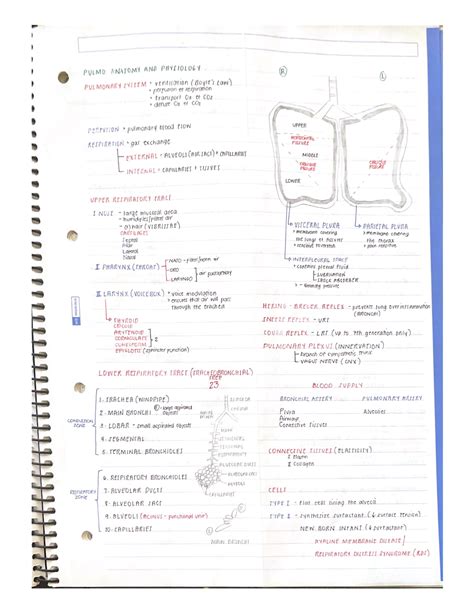 PULMO ANATOMY AND PHYSIOLOGY
PULMONARY SYSTEM • ventilation (Boyle's law)
• perfusion or respiration
• transport O2 or CO2
• diffuse O2 or CO2
PERFUSION • pulmonary blood flow
RESPIRATION • gas exchange
EXTERNAL • ALVEOLI (AIR SACS) + CAPILLARIES
INTERNAL • CAPILLARIES + TISSUES
R
L
UPPER
HORIZONTAL FISSURE
MIDDLE
OBLIQUE FISSURE
LOWER
OBLIQUE FISSURE
UPPER RESPIRATORY TRACT
I NOSE - large mucosal area
• humidifies/filter air
• hair (VIBRISSAE)
CARTILAGES
Septal
Alar
Lateral
I PHARYNX (THROAT)
NASO
ORO
LARYNGO
air passageway
II LARYNX (VOICEBOX) • voice modulation
• ensures that air will pass through the trachea
THYROID
CRICOID
ARYTENOID
CORNICULATE
CUNEIFORM
2
EPIGLOTTIS
VISCERAL PLURA
• membrane covering the lungs & fissure
• nourished
PARIETAL PLURA
• membrane covering the thorax
• pain receptors
INTERPLEURAL SPACE
• contains pleural fluid
LUBRICATION
SHOCK ABSORBER
HERING - BREUER REFLEX - prevents lung overinflammation
(BRONCHI)
SNEEZE REFLEX - URT
COUGH REFLEX - LRT (up to 7th generation only)
PULMONARY PLEXUS (INNERVATION)
branch of sympathetic trunk
VAGUS NERVE (CNX)
LOWER RESPIRATORY TRACT (TRACHEOBRONCHIAL TREE)
23
CONDUCTION ZONE
1. TRACHEA (WINDPIPE)
2. MAIN BRONCHI
large aspirated objects
3. LOBAR • small aspirated objects
4. SEGMENTAL
5. TERMINAL BRONCHIOLES
RESPIRATORY ZONE
6. RESPIRATORY BRONCHIOLES
7. ALVEOLAR DUCTS
8. ALVEOLAR SACS
9. ALVEOLI (ACINUS - functional unit)
10. CAPILLARIES
TRACHEA
MAIN
LOBAR
ALVEOLAR DUCTS
ALVEOLAR SAC
ALVEOLI
CAPILLARIES
MAIN BRONCHI
BLOOD SUPPLY
BRONCHIAL ARTERY
PULMONARY ARTERY
Plura
Airways
Connective tissues
Alveoles
CONNECTIVE TISSUES (ELASTICITY)
1 Elastin
2 Collagen
CELLS
TYPE I - flat cell lining the alveoli
TYPE II - synthesize surfactant (↓ surface tension)
NEW BORN INFANT (↓ surfactant)
HYALINE MEMBRANE DISEASE /
RESPIRATORY DISTRESS SYNDROME (RDS)